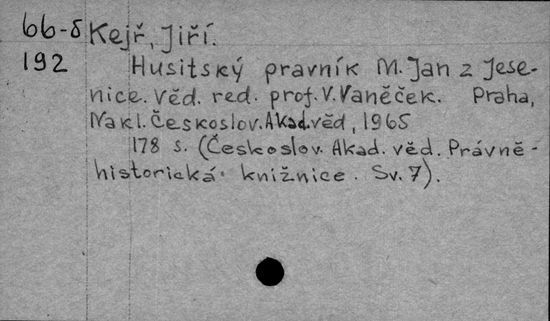 66-8 Kejř, Jiří.
192 Husitský pravník M. Jan z Jese-
nice. Věd. red. prof. V. Vaněček. Praha,
Nakl. Českoslov. Akad. věd, 1965
178 s. (Českoslov. Akad. věd. Právně-
historická knižnice. Sv. 7).